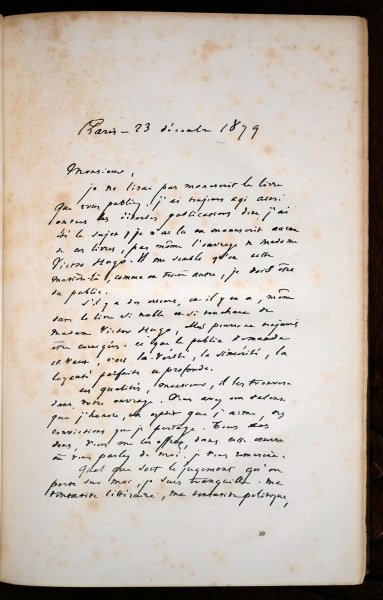 Paris – 23 décembre 1879
Monsieur,
je ne lirai pas manuscrit le livre
que vous publiez. j'ai toujours agi ainsi
envers les diverses publications dont j'ai
été le sujet; je n'ai lu en manuscrit aucun
de ces livres, pas même l'ouvrage de Madame
Victor Hugo. Il me semble qu'en cette
matière-là, comme en toute autre, je dois être
du public.
S'il y a des erreurs, et il y en a, même
dans le livre si noble et si touchant de
Madame Victor Hugo, elles pourront toujours
être corrigées. ce que le public demande
et veut, c'est la vérité, la sincérité, la
loyauté parfaite et profonde.
ces qualités, Monsieur, il les trouvera
dans votre ouvrage. Vous avez un talent
que j'honore, un esprit que j'aime, des
convictions que je partage. Tous ces
dons, vous me les offrez, dans cette œuvre
où vous parlez de moi. je vous remercie.
Quel que soit le jugement qu'on
porte sur moi, je suis tranquille. ma
tentative littéraire, ma tentative politique,
59